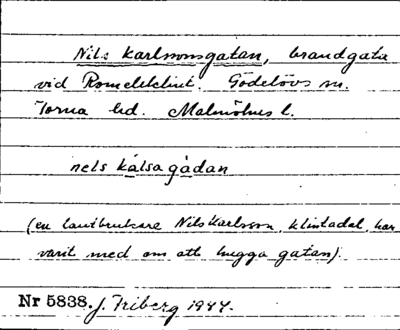 Nils Karlssonsgatan, brandgata
vid Romeleklint. Gödelövs sn.
Torna hd. Malmöhus l.
nels kalsa gådan
(en lantbrukare Nils Karlsson, Klintadal, har
varit med om att hugga gatan).
Nr 5838. J. Friberg 1944.